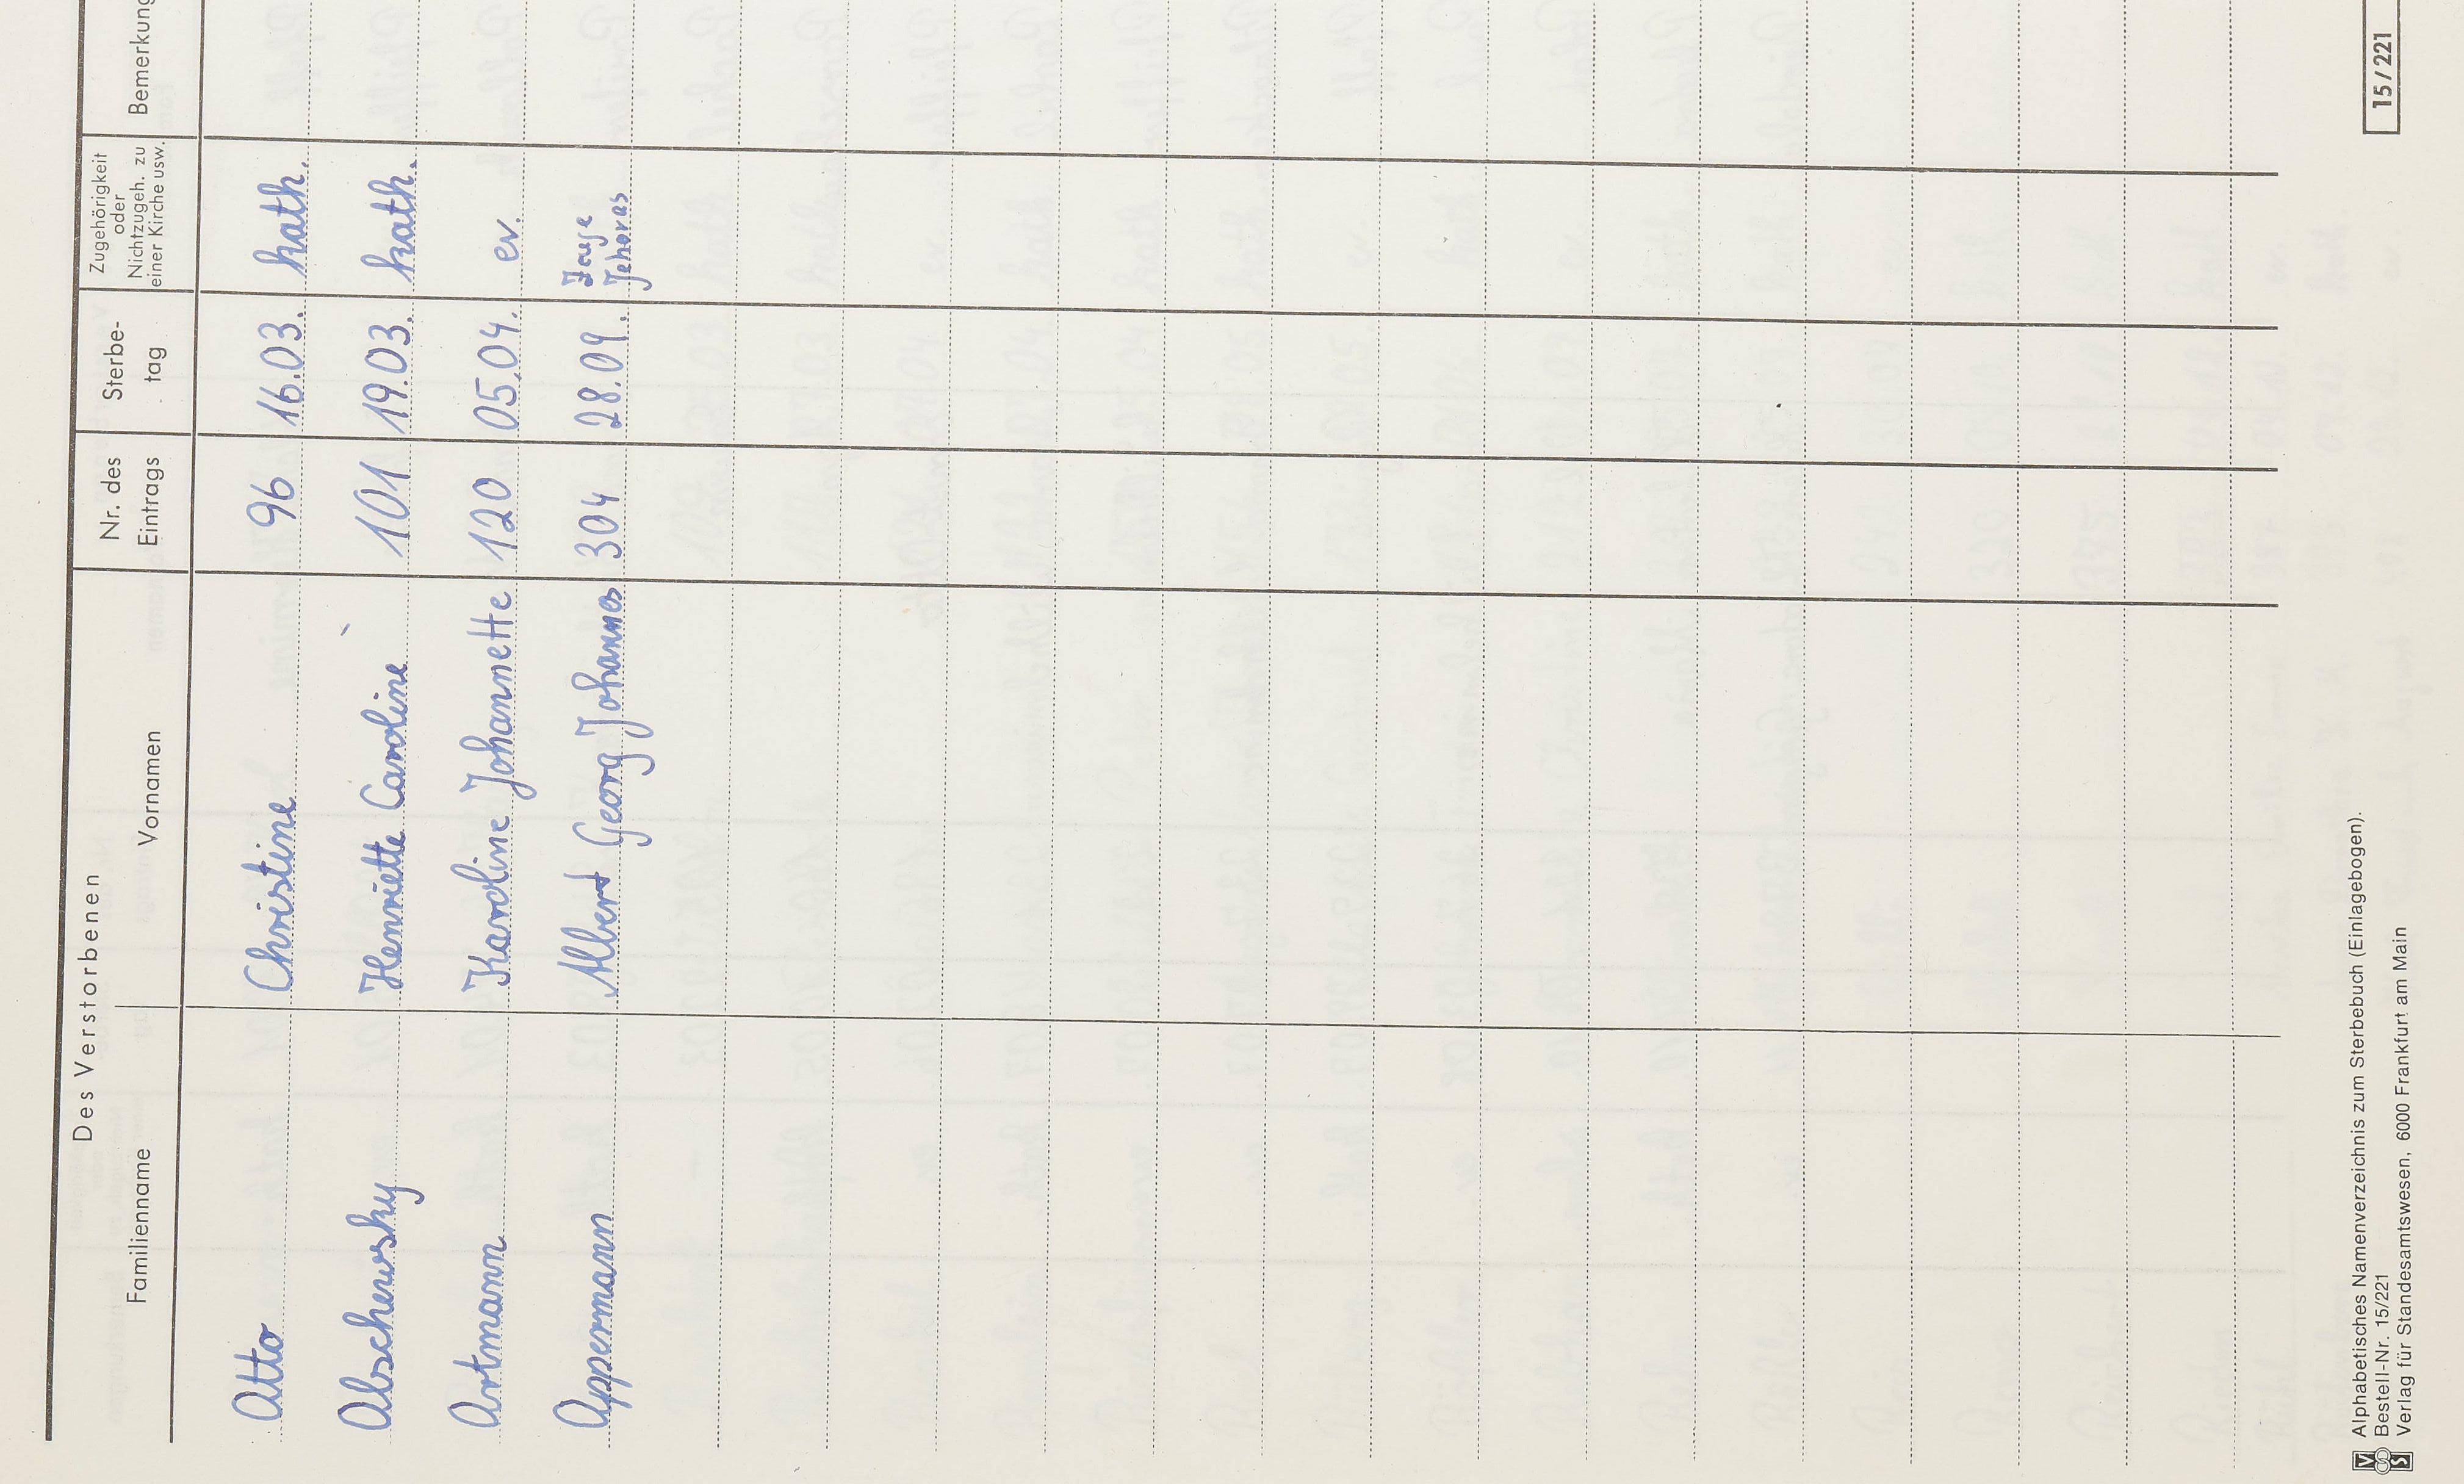 Des Verstorbenen
Familienname Vornamen Nr. des Eintrags Sterbe-tag Zugehörigkeit oder Nichtzugeh. zu einer Kirche usw. Bemerkung
Atto Christine 96 16.03. kath.
Abschewsky Henriette Caroline 101 19.03. kath.
Artmann Karoline Johannette 120 05.04. ev.
Appermann Albert Georg Johannes 304 28.09. Zeuge Jehovas
Alphabetisches Namenverzeichnis zum Sterbebuch (Einlagebogen).
Bestell-Nr. 15/221
Verlag für Standesamtswesen, 6000 Frankfurt am Main
15/221